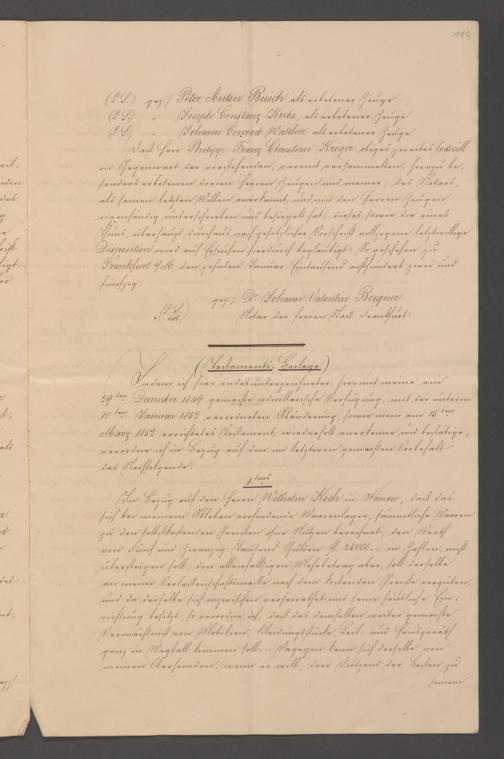 114
(L.S.) gez:/ Peter Anton Busch als erbetener Zeuge
(L.S.) " Joseph Constanz Krebs, als erbetener Zeuge
(L.S.) " Johann Conrad Walther als erbetener Zeuge.
Daß Herr Philipp Franz Christian Krüger obiges zweites Codicill
in Gegenwart der vorstehenden, vereint versammelten, hierzu be-
sonders erbetenen dreien Herren Zeugen und meiner, des Notars,
als seinen letzten Willen anerkannt, und mit den Herren Zeugen
eigenhändig unterschrieben und besiegelt hat; dieses, sowie die eines
überhaupt durchaus nach gesetzlicher Vorschrift vollzogene letztwillige
Disposition wird auf Ersuchen hierdurch beglaubigt. So geschehen zu
Frankfurt a/M. den zehnten Januar Eintausend achthundert zwei und
fünfzig.
gez:/ Dr. Johann Valentin
(L.S. not.) Notar der freien Stadt Frankfurt.
(Testaments-Beilage)
Indem ich hier endesunterzeichneter hiermit meine am
29ten December 1849 gemachte codicillarische Verfügung, mit der unterm
10ten Januar 1852 verordneten Abänderung, sowie mein am 15ten
März 1852 errichtetes Testament, wiederholt anerkenne und bestätige,
verordne ich in Bezug auf den im letzteren gemachten Vorbehalt
das Nachfolgende:
1tens
In Bezug auf den Herrn Wilhelm Koch in Hanau, daß das
sich bei meinem Ableben vorfindende Waarenlager, sämmtliche Waaren
zu den selbstkostenden Preisen ohne Nutzen berechnet, den Werth
von Fünf und Zwanzig Tausend Gulden fl. 25000.- im Ganzen, nicht
übersteigen soll, den allenfallsigen Mehrbetrag aber, soll derselbe
an meine Verlassenschaftsmasse nach dem kostenden Preise vergüten,
und da derselbe sich inzwischen verheirathet und seine häusliche Ein-
richtung besitzt, so verordne ich, daß das demselben weiter gemachte
Vermächtniß von Mobilien, Kleidungsstücke, Bett- und Hausgeräth
ganz in Wegfall kommen soll. - Dagegen kann sich derselbe von
meinen Oberhemden, wenn er will, drei Dutzend der Besten zu
seinem